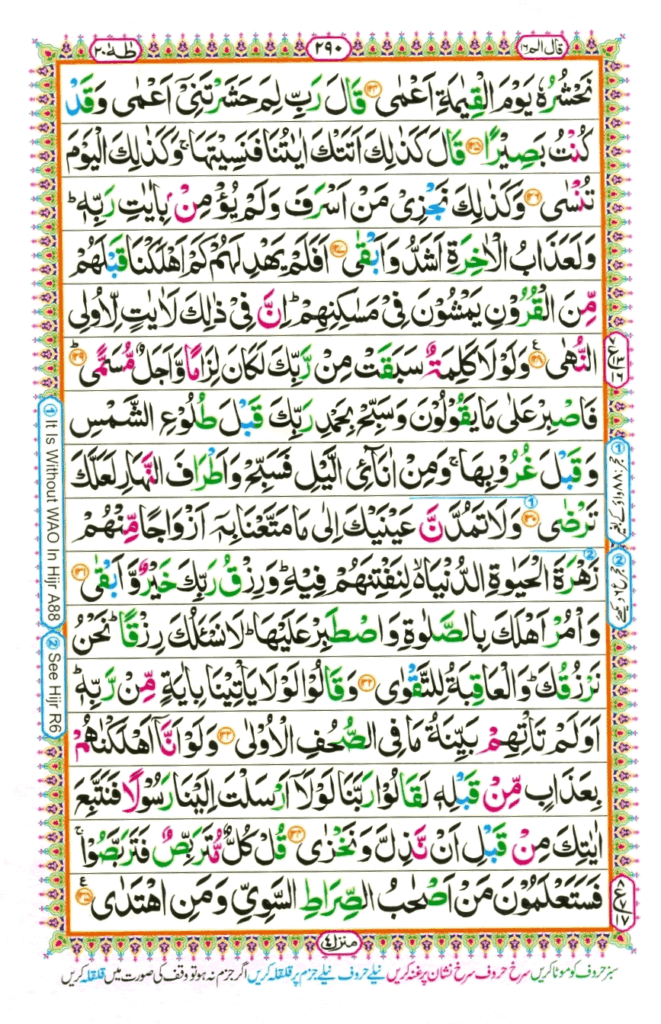 قال الم ١٦
٢٩٠
طٰهٰ ٢٠
نَحۡشُرُهٗ يَوۡمَ الۡقِيٰمَةِ اَعۡمٰى قَالَ رَبِّ لِمَ حَشَرۡتَنِىۡۤ اَعۡمٰى وَقَدۡ
كُنۡتُ بَصِيۡرًا قَالَ كَذٰلِكَ اَتَتۡكَ اٰيٰتُنَا فَنَسِيۡتَهَا‌ۚ وَكَذٰلِكَ الۡيَوۡمَ
تُنۡسٰى وَكَذٰلِكَ نَجۡزِىۡ مَنۡ اَسۡرَفَ وَلَمۡ يُؤۡمِنۡۢ بِاٰيٰتِ رَبِّهٖ‌ؕ
وَلَعَذَابُ الۡاٰخِرَةِ اَشَدُّ وَاَبۡقٰى اَفَلَمۡ يَهۡدِ لَهُمۡ كَمۡ اَهۡلَكۡنَا قَبۡلَهُمۡ
مِّنَ الۡقُرُوۡنِ يَمۡشُوۡنَ فِىۡ مَسٰكِنِهِمۡ‌ؕ اِنَّ فِىۡ ذٰلِكَ لَاٰيٰتٍ لِّاُولِى
النُّهٰى وَلَوۡلَا كَلِمَةٌ سَبَقَتۡ مِنۡ رَّبِّكَ لَكَانَ لِزَامًا وَّاَجَلٌ مُّسَمًّىؕ
فَاصۡبِرۡ عَلٰى مَا يَقُوۡلُوۡنَ وَسَبِّحۡ بِحَمۡدِ رَبِّكَ قَبۡلَ طُلُوۡعِ الشَّمۡسِ
وَقَبۡلَ غُرُوۡبِهَا‌ۚ وَمِنۡ اٰنَآىٴِ الَّيۡلِ فَسَبِّحۡ وَاَطۡرَافَ النَّهَارِ لَعَلَّكَ
تَرۡضٰى وَلَا تَمُدَّنَّ عَيۡنَيۡكَ اِلٰى مَا مَتَّعۡنَا بِهٖۤ اَزۡوَاجًا مِّنۡهُمۡ
زَهۡرَةَ الۡحَيٰوةِ الدُّنۡيَا ۙ لِنَفۡتِنَهُمۡ فِيۡهِ‌ؕ وَرِزۡقُ رَبِّكَ خَيۡرٌ وَّاَبۡقٰى
وَاۡمُرۡ اَهۡلَكَ بِالصَّلٰوةِ وَاصۡطَبِرۡ عَلَيۡهَا‌ؕ لَا نَسۡـَٔلُكَ رِزۡقًا‌ؕ نَحۡنُ
نَرۡزُقُكَ‌ؕ وَالۡعَاقِبَةُ لِلتَّقۡوٰى وَقَالُوۡا لَوۡلَا يَاۡتِيۡنَا بِاٰيَةٍ مِّنۡ رَّبِّهٖ‌ؕ
اَوَلَمۡ تَاۡتِهِمۡ بَيِّنَةُ مَا فِى الصُّحُفِ الۡاُوۡلٰى وَلَوۡ اَنَّاۤ اَهۡلَكۡنٰهُمۡ
بِعَذَابٍ مِّنۡ قَبۡلِهٖ لَقَالُوۡا رَبَّنَا لَوۡلَاۤ اَرۡسَلۡتَ اِلَيۡنَا رَسُوۡلًا فَنَتَّبِعَ
اٰيٰتِكَ مِنۡ قَبۡلِ اَنۡ نَّذِلَّ وَنَخۡزٰى قُلۡ كُلٌّ مُّتَرَبِّصٌ فَتَرَبَّصُوۡا‌ۚ
فَسَتَعۡلَمُوۡنَ مَنۡ اَصۡحٰبُ الصِّرَاطِ السَّوِىِّ وَمَنِ اهۡتَدٰى
① It Is Without WAO In Hijr A88
② See Hijr R6
منزل ٤
سبز حروف کو موٹا کریں سرخ حروف سرخ نشان پر غنہ کریں نیلے حروف نیلے جزم پر قلقلہ کریں اگر جزم نہ ہو تو وقف کی صورت میں قلقلہ کریں